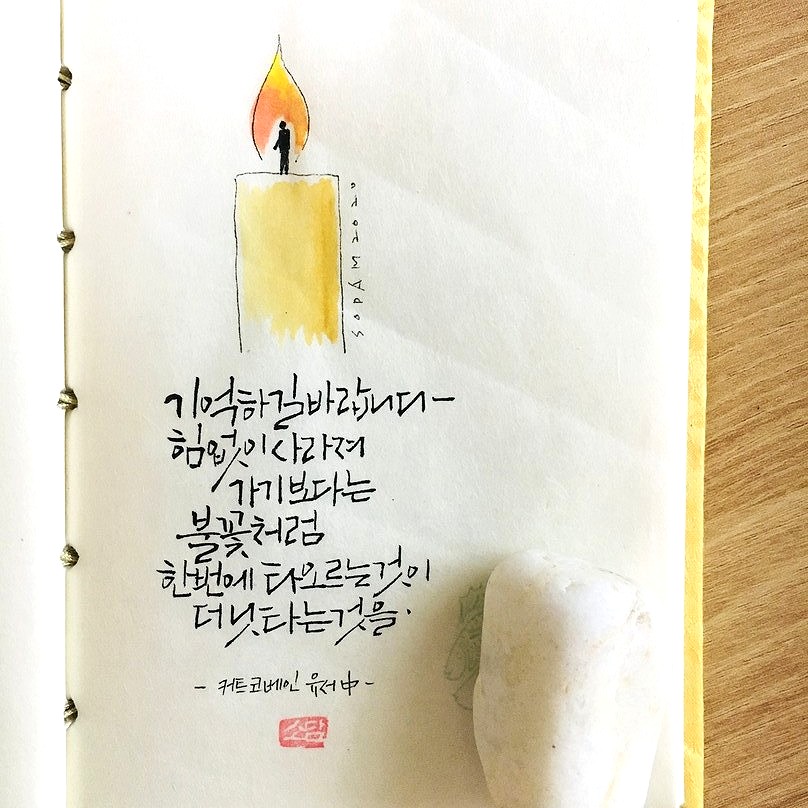 기억하길바랍니다-
힘없이사라져
가기보다는
불꽃처럼
한번에 타오르는것이
더낫다는것을.
- 커트코베인 유저 中 -
소담